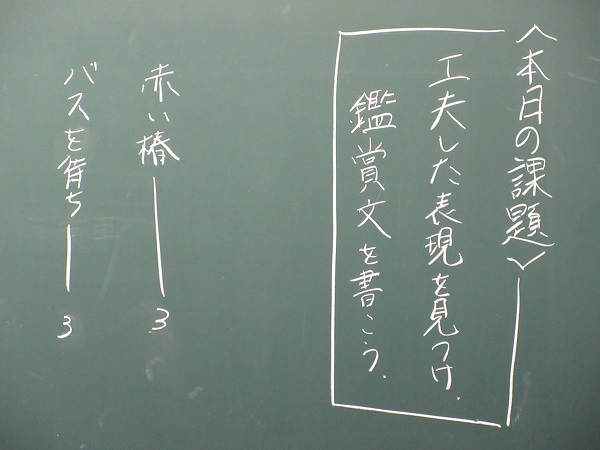 〈本日の課題〉
工夫した表現を見つけ、
鑑賞文を書こう。
赤い椿――3
バスを待ち――3